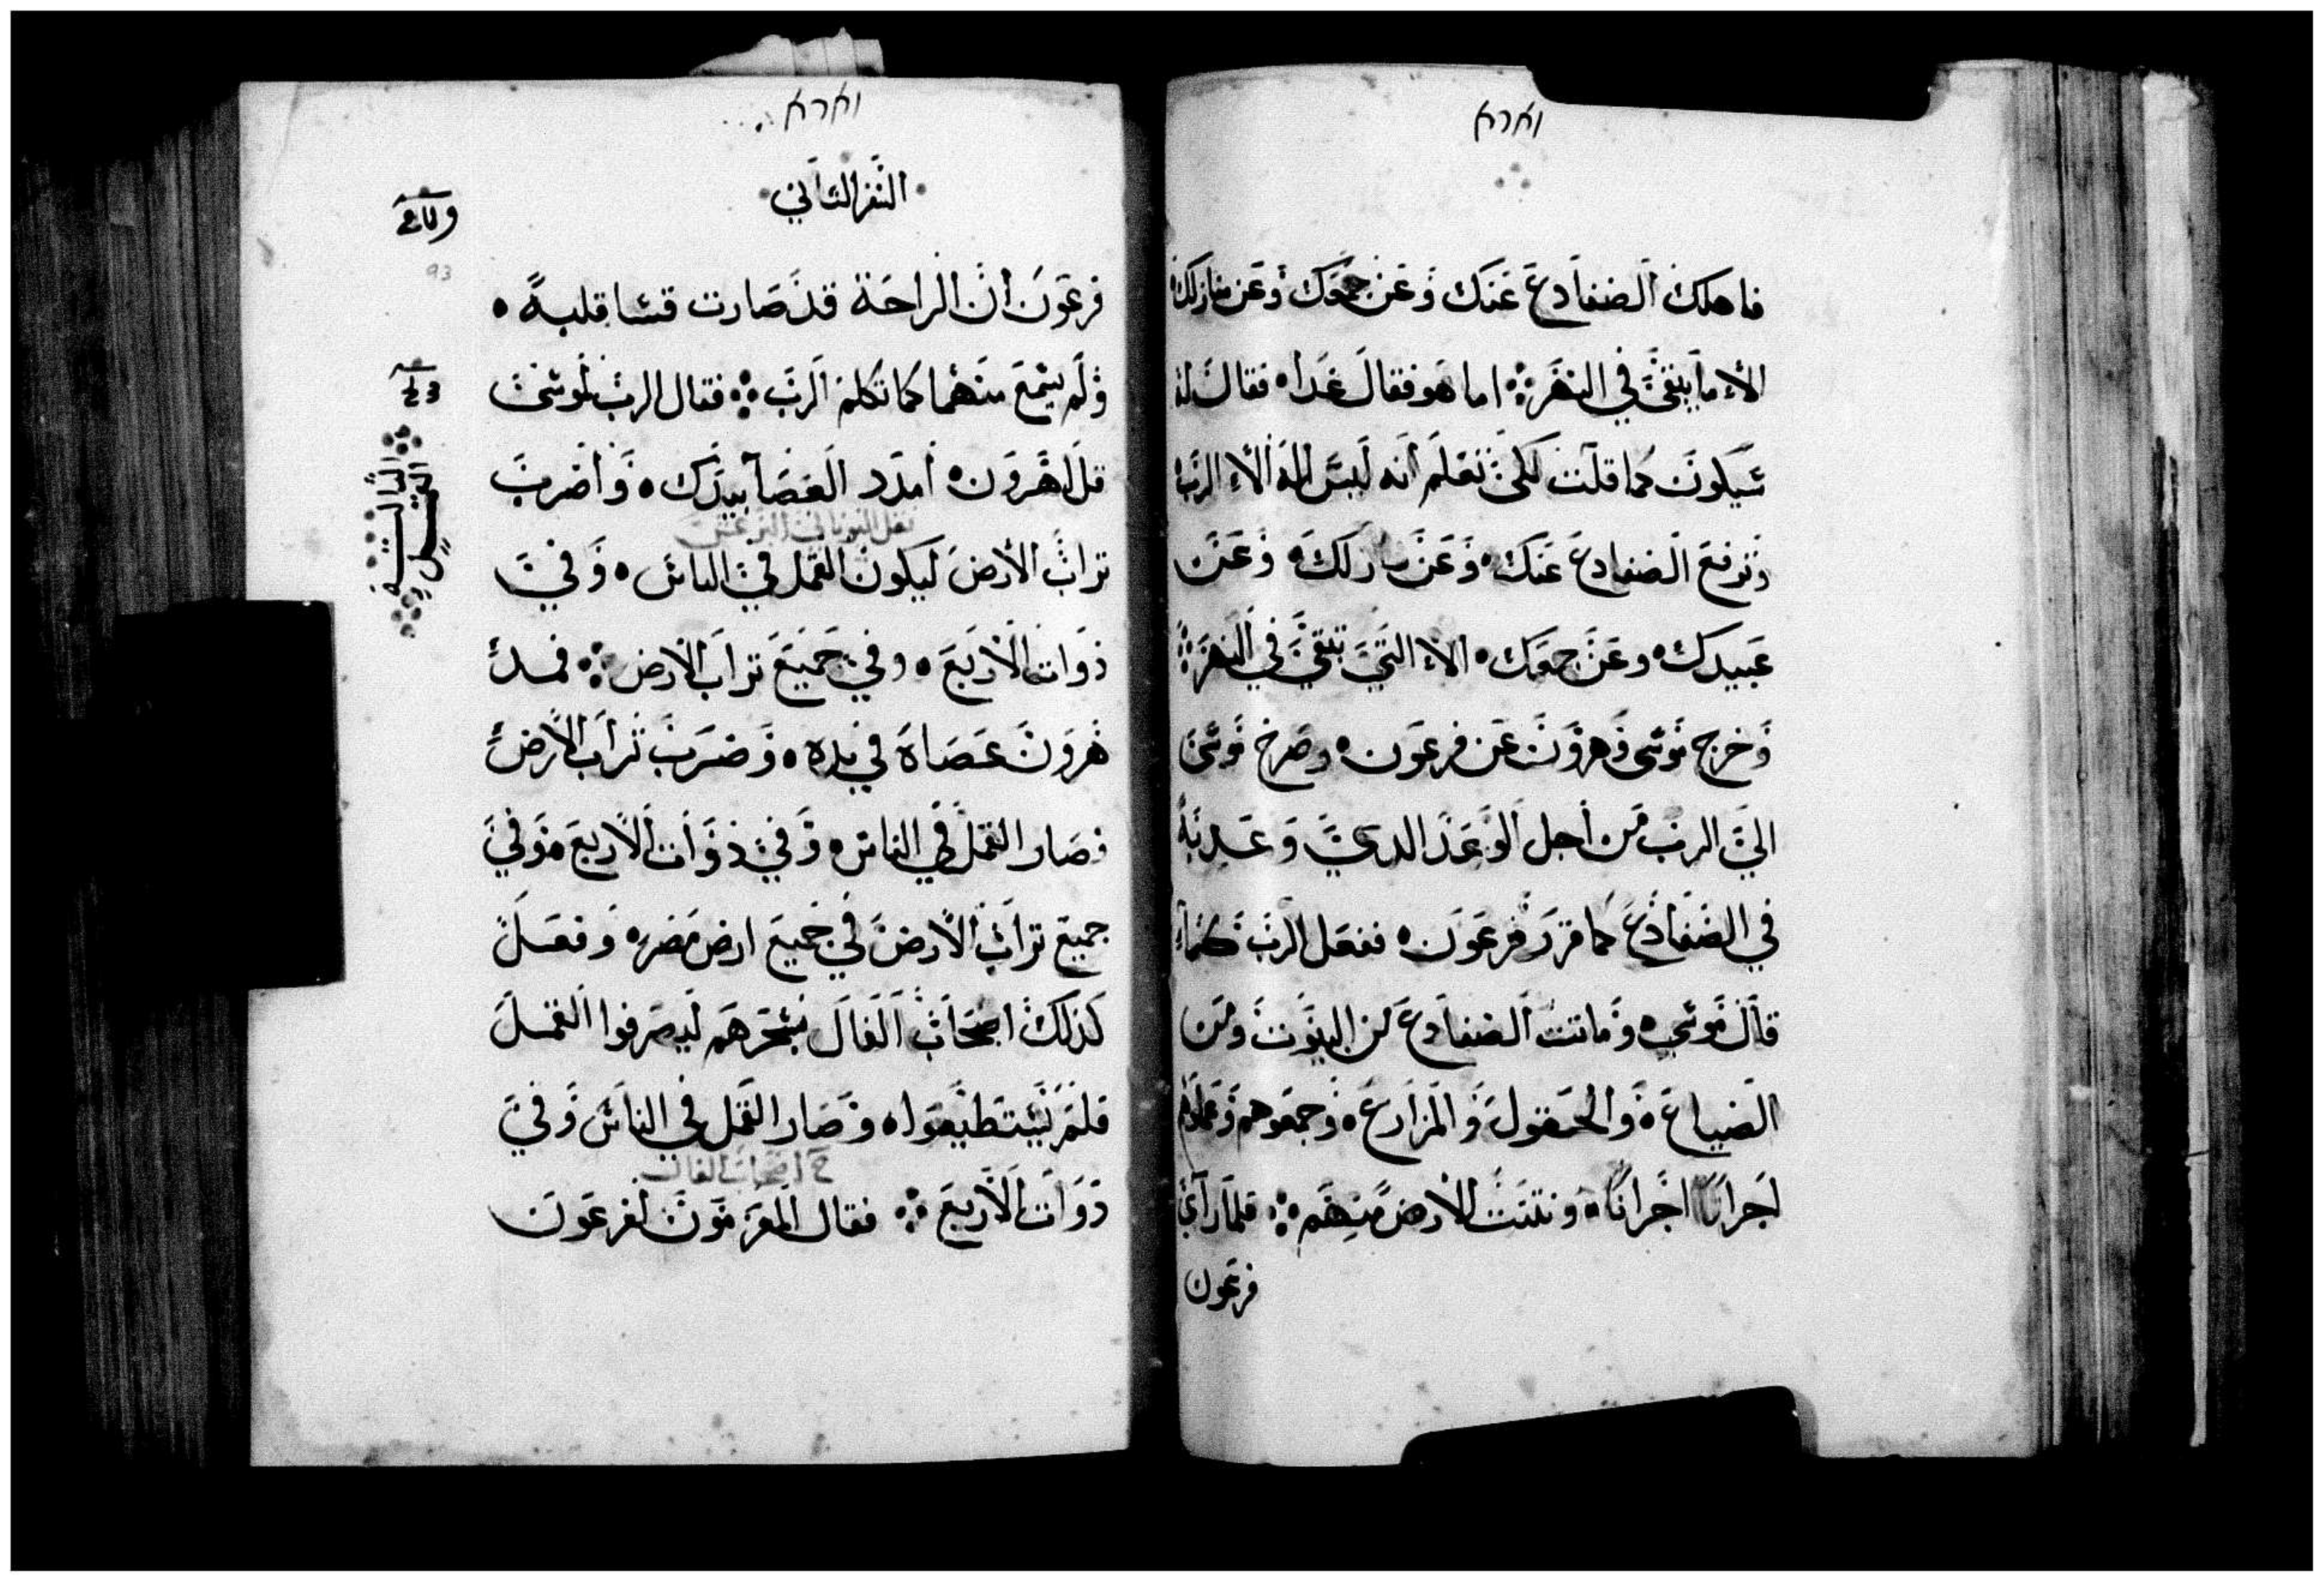 וארא
فاهلك الضفادع عنك وعن جمعك وعن منازلك
الا ما يبقى في النهر ⁘ اما هو فقال غدا ٥ فقال له
سيكون كما قلت لكي تعلم انه ليس اله الا الرب ٥
وترفع الضفادع عنك ٥ وعن منازلك ٥ وعن
عبيدك ٥ وعن جمعك ٥ الا التي تبقي في النهر ⁘
وخرج موسى وهرون عن فرعون ٥ وصرخ موسى
الي الرب من اجل الوعد الدي وعد به
في الضفادع كما قرر فرعون ٥ ففعل الرب كما
قال موسي ٥ وماتت الضفادع من البيوت ومن
الضياع ٥ والحقول والمزارع ٥ وجمعوهم وعملوهم
اجرانا اجرانا ٥ ونتنت الارض منهم ⁘ فلما رآي
فرعون
וארא
السفر الثاني
فرعون ان الراحة قد صارت قسا قلبه ٥
ولم يسمع منهما كما تكلم الرب ⁘ فقال الرب لموسى
قل لهرون ٥ امدد العصا بيدك ٥ واضرب
تراب الارض ليكون القمل في الناس ٥ وفي
ذوات الاربع ٥ وفي جميع تراب الارض ⁘ فمد
هرون عصاه في يده ٥ وضرب تراب الارض
فصار القمل في الناس ٥ وفي ذوات الاربع ٥ وفي
جميع تراب الارض في جميع ارض مصر ٥ وفعل
كذلك اصحاب الفال بسحرهم ليصرفوا القمل
فلم يستطيعوا ٥ وصار القمل في الناس وفي
ح اصحاب الفال
ذوات الاربع ⁘ فقال المعزمون لفرعون
93